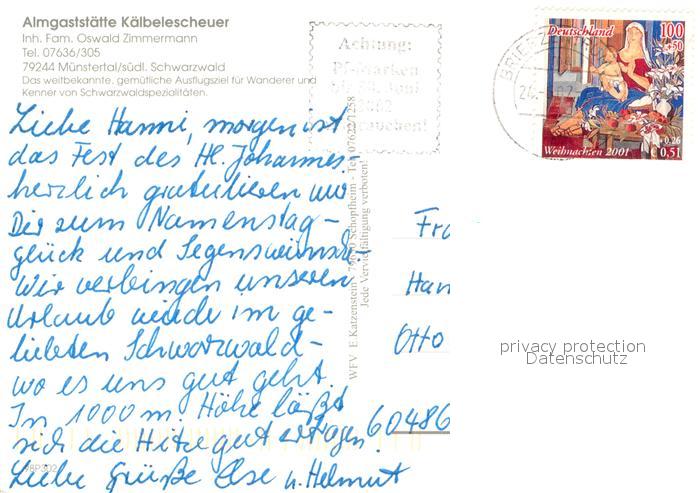 Almgaststätte Kälbelescheuer
Inh. Fam. Oswald Zimmermann
Tel. 07636/305
79244 Münstertal/südl. Schwarzwald
Das weitbekannte, gemütliche Ausflugsziel für Wanderer und
Kenner von Schwarzwaldspezialitäten.
Achtung:
Pf-Marken
bis Juni
2002
brauchen!
BRIEFZ
24.
Deutschland 100
+50
Weihnachten 2001
+0,26
0,51
Liebe Hanni, morgen ist
das Fest des Hl. Johannes-
herzlich gratulieren wir
Dir zum Namenstag-
glück und Segenswünsche-
Wir verbringen unseren
Urlaub wieder im ge-
liebten Schwarzwald-
wo es uns gut geht.
In 1000 m. Höhe läßt
sich die Hitze gut ertragen.
Liebe Grüße Else u. Helmut
WFV E.Katzenstein - 79650 Schopfheim - Tel. 07622/1258
Jede Vervielfältigung verboten!
Fra
Han
Otto
60486
privacy protection
Datenschutz